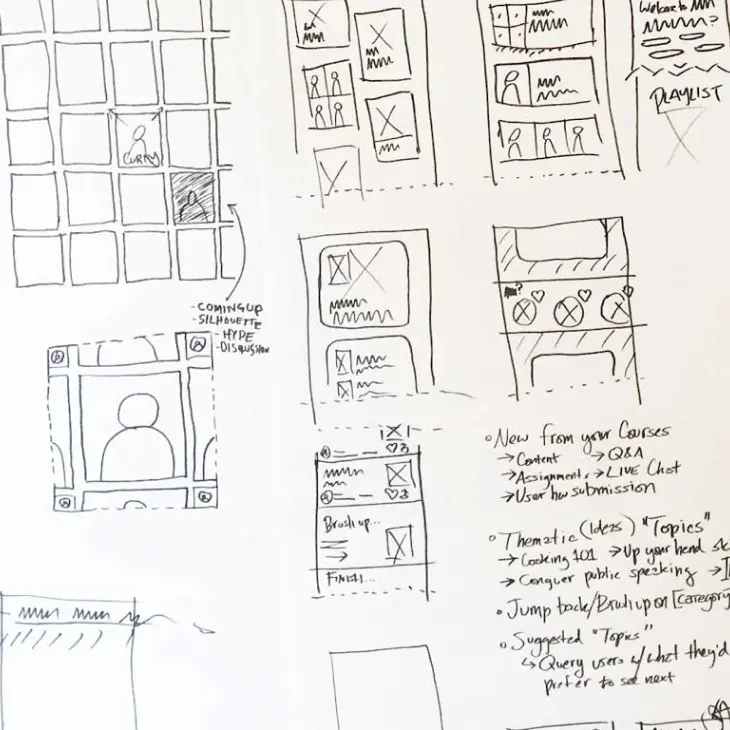 Welcome to
?
PLAYLIST
CURRY
- COMING UP
- SILHOUETTE
- HYPE
- DISCUSSION
?
3
3
Brush up...
FINISH...
New from your Courses
→ Content → Q&A
→ Assignment → LIVE Chat
→ User submission
Thematic (Ideas) "Topics"
→ Cooking 101 → Up your hand
→ Conquer public speaking →
Jump back/Brush up on [category
Suggested "Topics"
↳ Query users w/ what they'd
prefer to see next